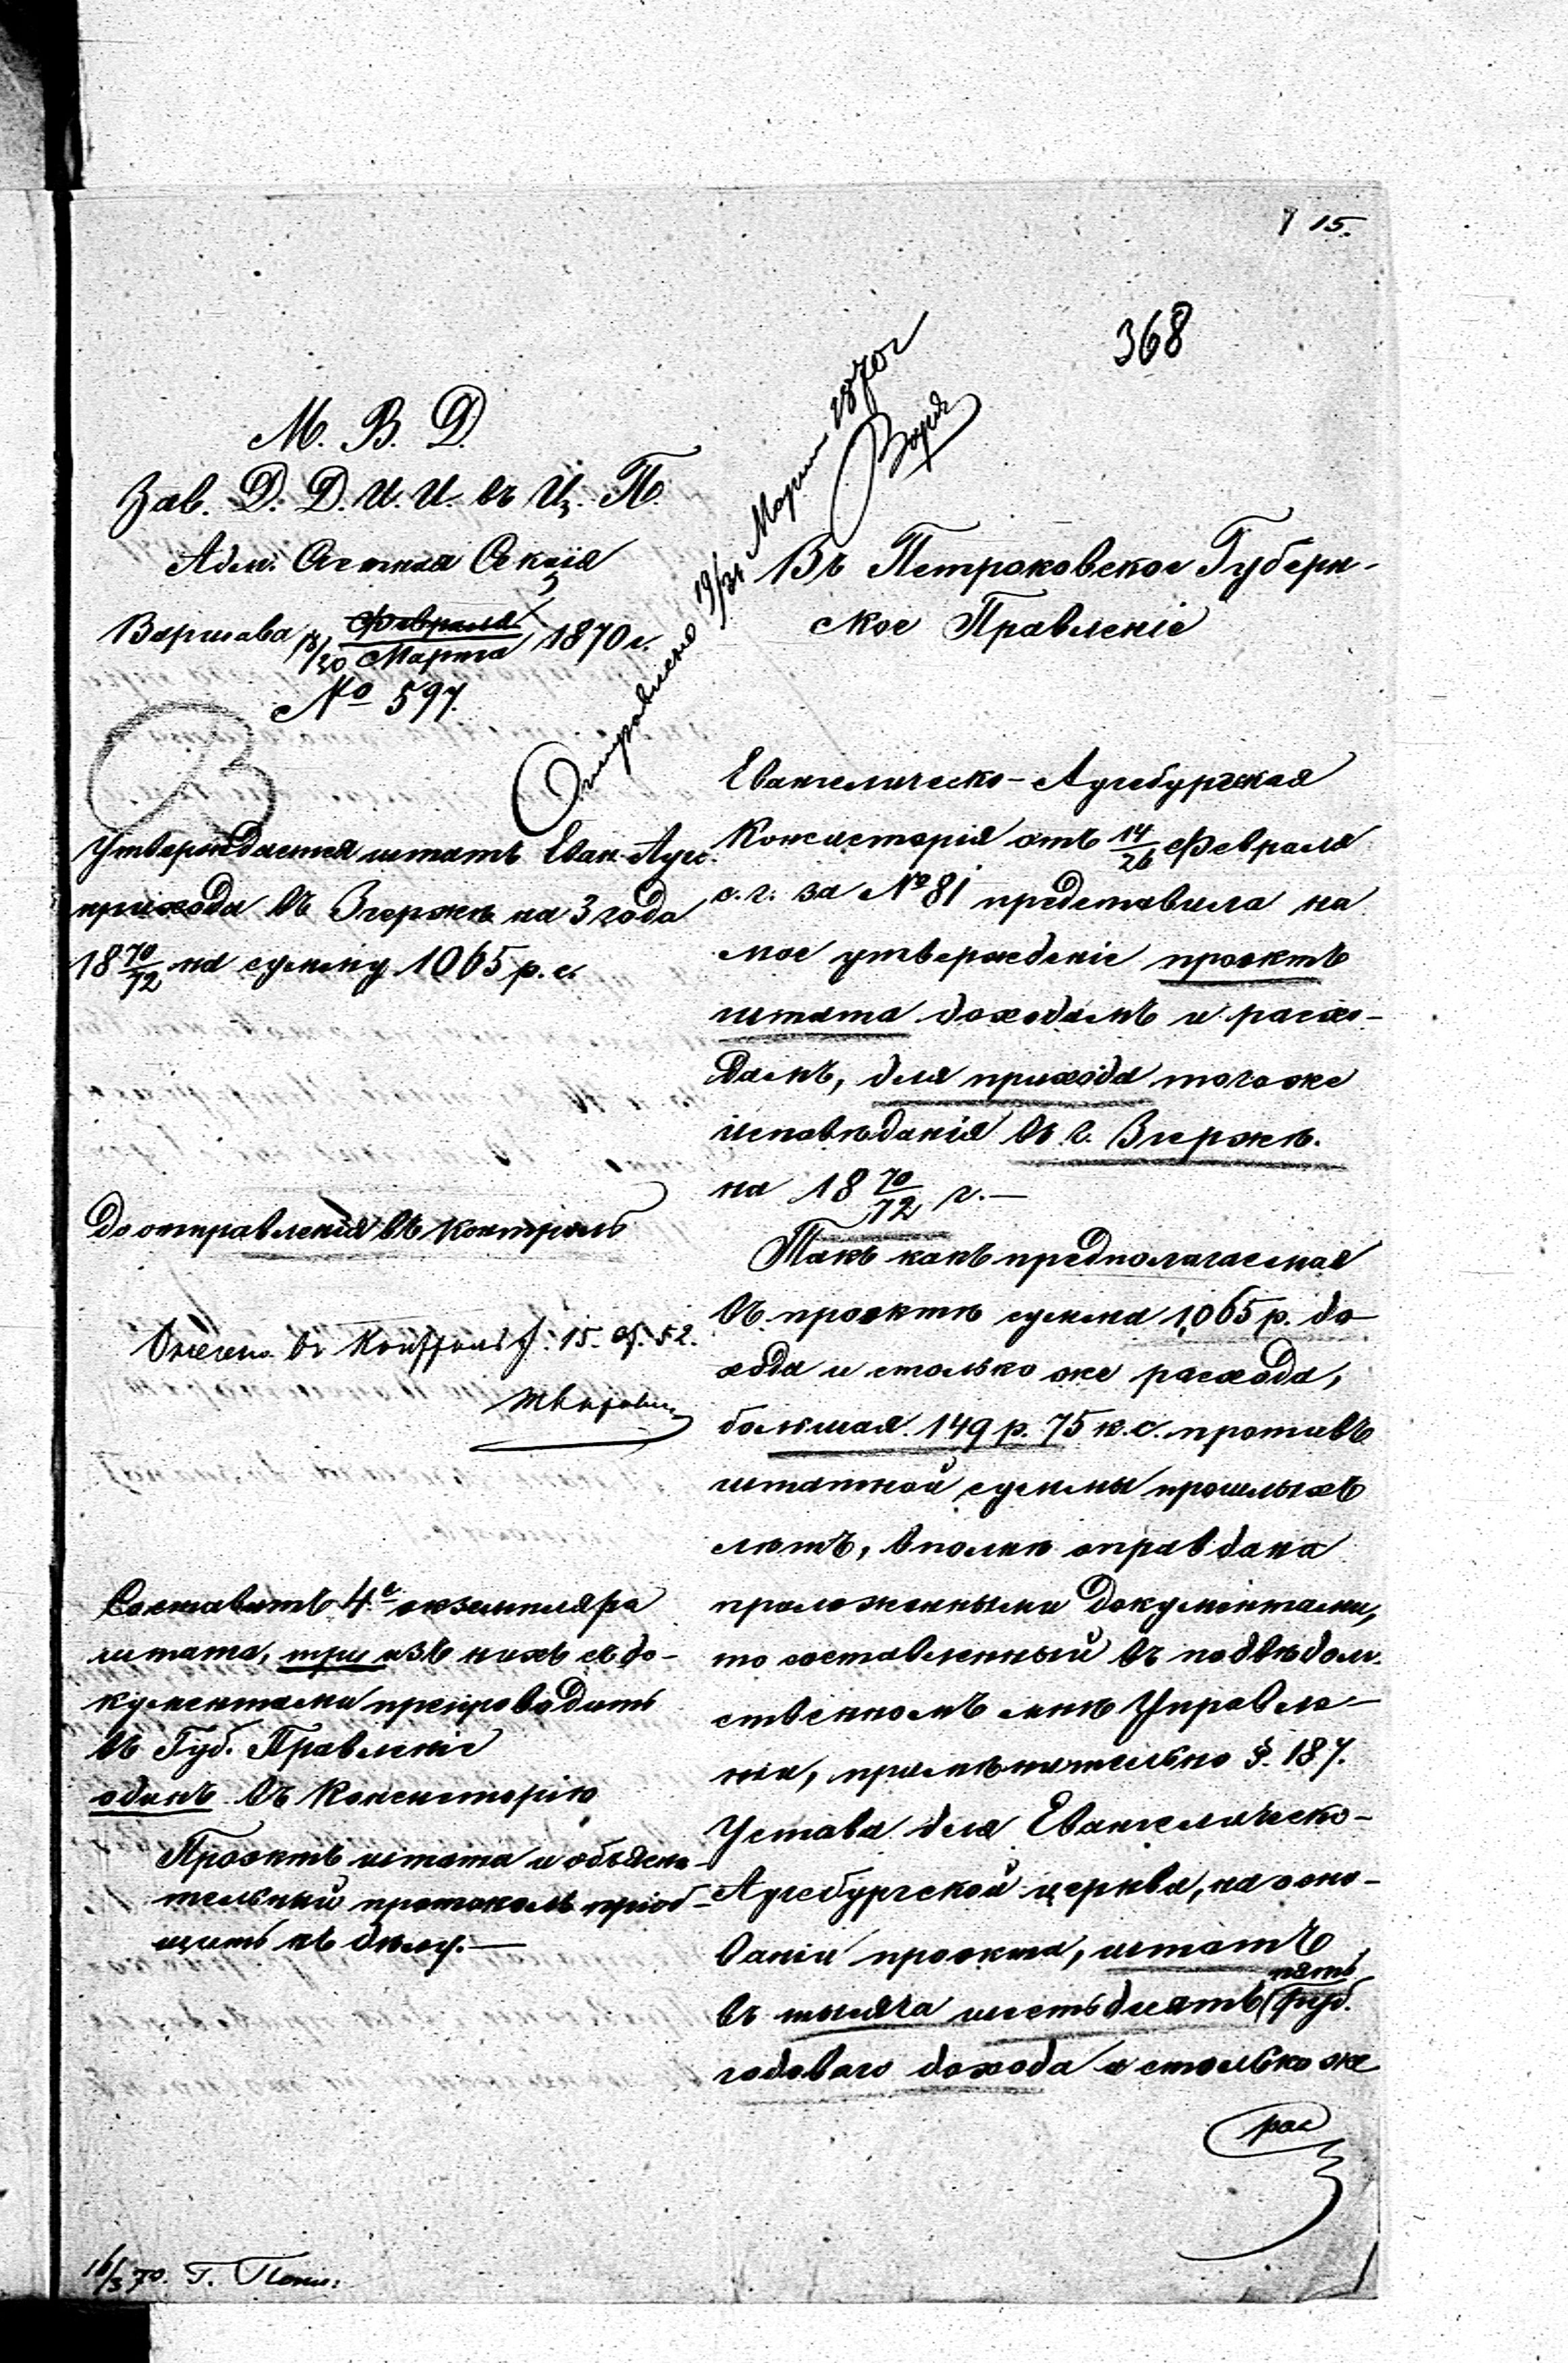 15.
368
М. В. Д.
Зав. Д. Д. И. И. въ Ц. П.
Адм. Счетная Секція
Варшава 18/30 Февраля Марта 1870 г.
№ 597.
Отправлено 19/31 Марта 1870 г
Въ Петроковское Губерн-
ское Правленіе
Утверждается штатъ Еван. Ауг.
прихода въ Згержѣ на 3 года
18 70/72 на сумму 1065 р. с.
До отправленія въ контроль
15. 52.
Составить 4е экземпляра
штата, три изъ нихъ съ до-
кументами препроводить
въ Губ. Правленіе
одинъ въ Консисторію
Проектъ штата и объясни-
тельный протоколъ пріоб-
щить къ дѣлу.—
Евангелическо-Аугсбургская
Консисторія отъ 14/26 Февраля
с. г. за № 81 представила на
мое утвержденіе проэктъ
штата доходамъ и расхо-
дамъ, для прихода тогоже
исповѣданія въ г. Згержѣ.
на 18 70/72 г.—
Такъ какъ предполагаемая
въ проэктѣ сумма 1,065 р. до-
хода и столько же расхода,
большая 149 р. 75 к. с. противъ
штатной суммы прошлыхъ
лѣтъ, вполнѣ оправдана
приложенными документами,
то составленный въ подвѣдом-
ственномъ мнѣ Управле-
ніи, примѣнительно §. 187.
Устава для Евангелическо-
Аугсбургской церкви, на осно-
ваніи проэкта, штатъ
пять
въ тысяча шестьдесятъ руб.
годоваго дохода и столько же
рас
16/3 70. Г.